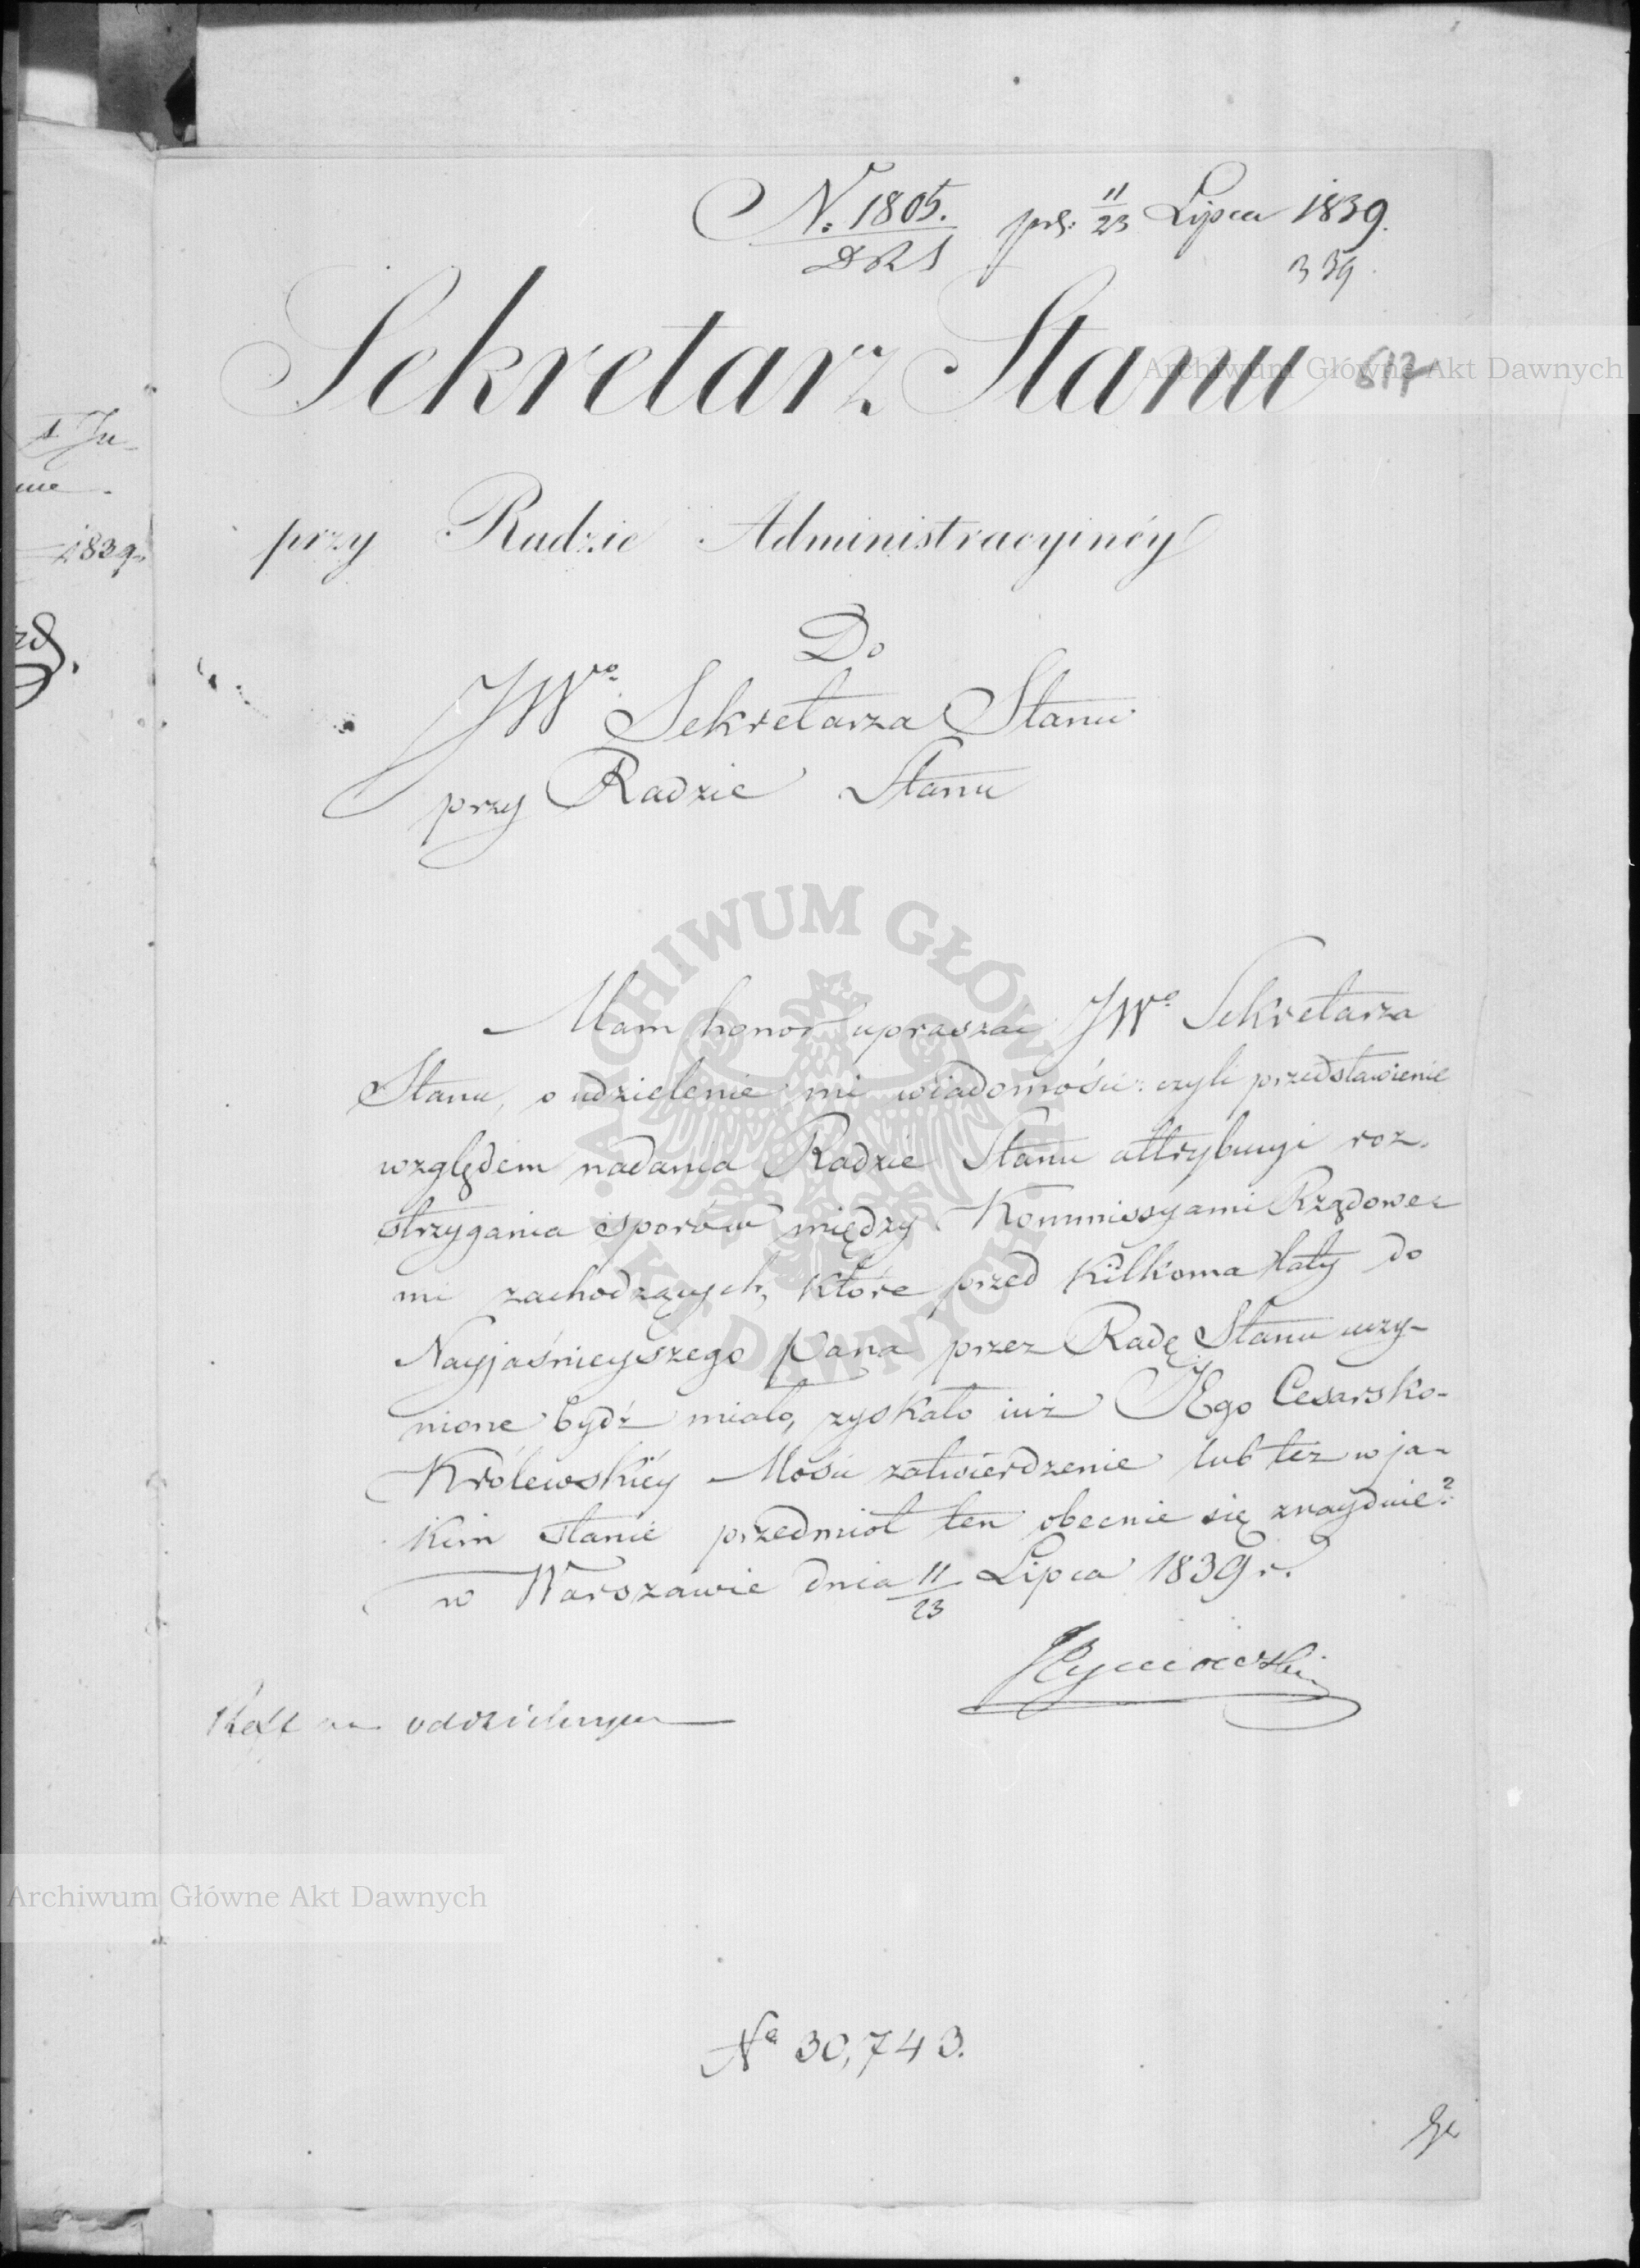 N. 1805. prs. 11/23 Lipca 1839.
DRS
339
Sekretarz Stanu
Archiwum Główne Akt Dawnych
przy Radzie Administracyinéy
Do
JWo Sekretarza Stanu
przy Radzie Stanu
ARCHIWUM GŁÓWNE AKT DAWNYCH
Mam honor upraszać JWo Sekretarza
Stanu, o udzielenie mi wiadomości: czyli przedstawienie
względem nadania Radzie Stanu attrybucyi roz-
strzygania sporów między Kommissyami Rządowe-
mi zachodzących, które przed kilkoma laty do
Nayjaśnieyszego Pana przez Radę Stanu uczy-
nione bydź miało, zyskało iuż JEgo Cesarsko-
Królewskiéy Mości zatwierdzenie lub też w ja-
kim stanie przedmiot ten obecnie się znayduie?
w Warszawie dnia 11/23 Lipca 1839 r.
na oddzielnym
Archiwum Główne Akt Dawnych
No 30,743.
1839